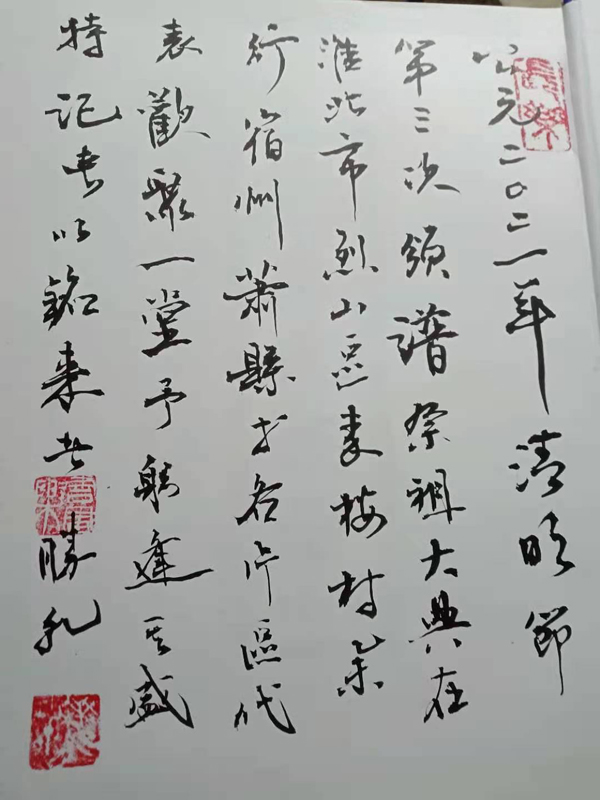 公元二〇二一年清明節
第三次領譜祭祖大典在
淮北市烈山區袁楼村举
行宿州蕭縣等各片區代
表歡聚一堂予躬逢其盛
特記書以銘來者 勝札